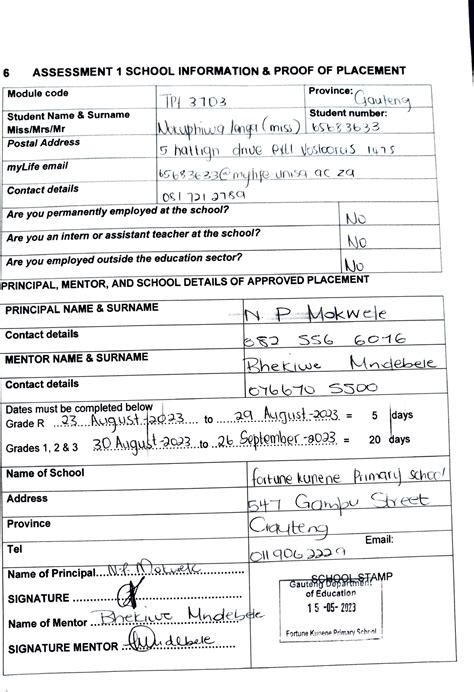 6 ASSESSMENT 1 SCHOOL INFORMATION & PROOF OF PLACEMENT
Module code TPF 3703 Province: Gauteng
Student Name & Surname Student number:
Miss/Mrs/Mr Langa (miss) 65683633
Postal Address 5 drive Vosloorus 1475
myLife email 65683633@mylife unisa ac za
Contact details 081 721 2789
Are you permanently employed at the school? No
Are you an intern or assistant teacher at the school? No
Are you employed outside the education sector? No
PRINCIPAL, MENTOR, AND SCHOOL DETAILS OF APPROVED PLACEMENT
PRINCIPAL NAME & SURNAME N. P Mokwele
Contact details 082 556 6076
MENTOR NAME & SURNAME Bhekiwe Mndebele
Contact details 076670 5500
Dates must be completed below
Grade R 23 August-2023 to 29 August-2023 = 5 days
Grades 1, 2 & 3 30 August-2023 to 26 September-2023 = 20 days
Name of School fortune kunene Primary school
Address 547 Gampu Street
Province Gauteng
Tel 011 906 2229 Email:
Name of Principal....N.P. Mokwele
SIGNATURE
Name of Mentor Bhekiwe Mndebele
SIGNATURE MENTOR Mndebele
SCHOOL STAMP
Gauteng Department
of Education
15 -05- 2023
Fortune Kunene Primary School